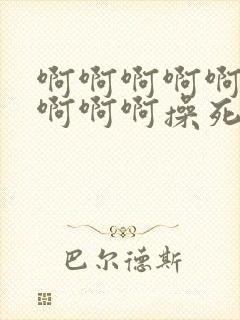 啊啊啊啊啊
啊啊啊操死
巴尔德斯